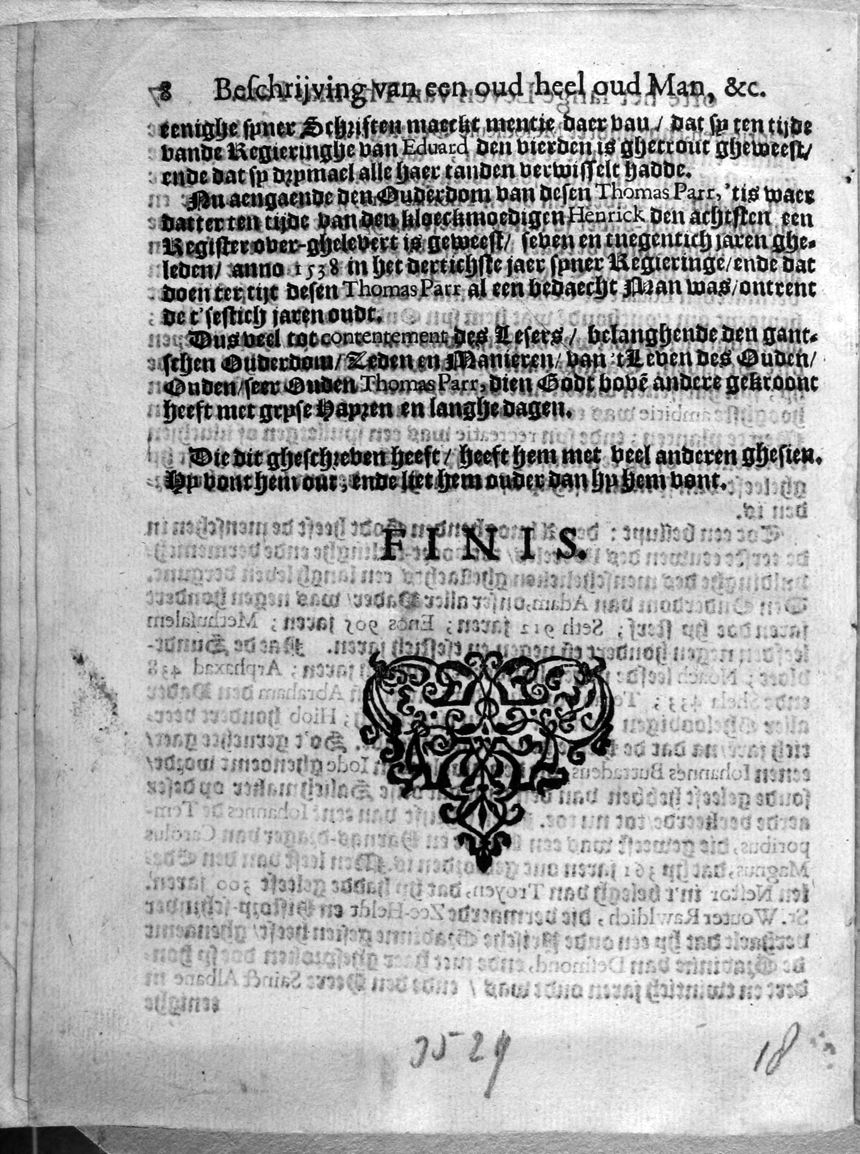 8 Beſchrijving van een oud heel oud Man, &c.
eenighe ſyner Schriften maeckt mentje daer van / dat ſy ten tijde
vande Regieringhe van Eduard den vierden is ghetrout gheweeſt/
ende dat ſy drymael alle haer tanden verwiſſelt hadde.
Nu aengaende den Ouderdom van deſen Thomas Parr, 'tis waer
datter ten tijde van den kloeckmoedigen Henrick den achtſten een
Regiſter over-ghelevert is geweeſt/ ſeven en tnegentich jaren ghe-
leden/ anno 1538 in het dertichſte jaer ſyner Regieringe/ende dat
doen ter tijt deſen Thomas Parr al een bedaecht Man was/ontrent
de t'ſeſtich jaren oudt.
Dus veel tot contentement des Leſers / belanghende den gant-
ſchen Ouderdom/ Zeden en Manieren/ van 't Leven des Ouden/
Ouden/ſeer Ouden Thomas Parr, dien Godt bovē andere gekroont
heeft met gryſe Hayren en langhe dagen.
Die dit gheſchreven heeft / heeft hem met veel anderen gheſien.
Hy vont hem out, ende liet hem ouder dan hy hem vont.
FINIS.
3524
18